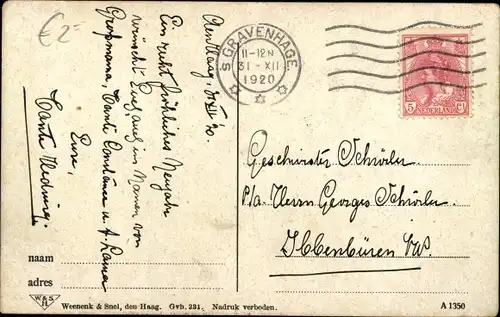 € 2-
Den Haag, 31 XII 20.
Ein recht fröhliches Neujahr
wünscht Euch auch im Namen von
Grossmama, Tante Constance u.
Eure,
Tante Hedwig.
'S GRAVENHAGE
11-12N
31-XII
1920
5 Ct
NEDERLAND
Geschwister Schürler
p/a. Herrn Georges Schürler
Ibbenbüren
naam
adres
W&S
H
Weenenk & Snel, den Haag. Gvh. 231. Nadruk verboden.
A 1350